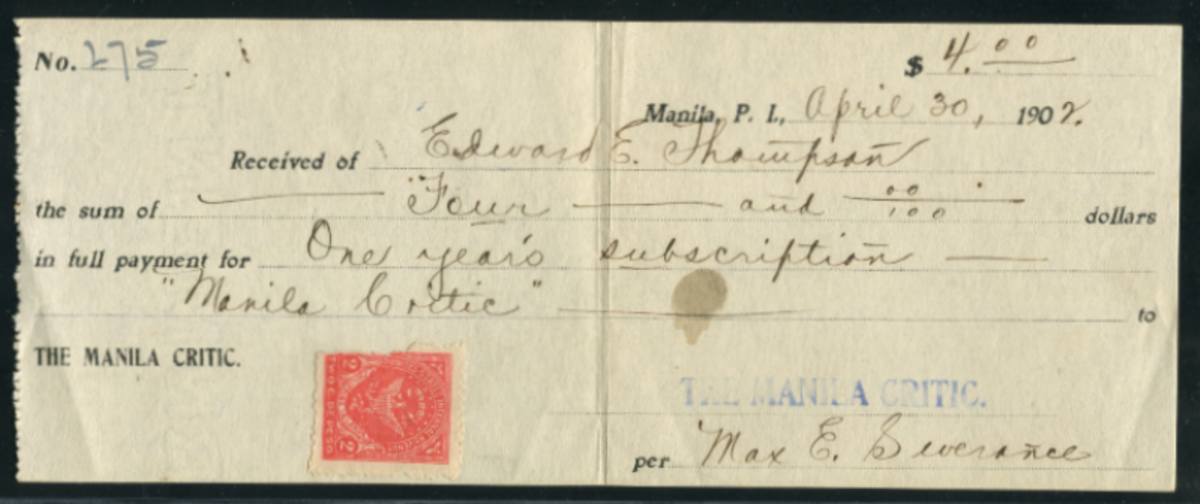 No. 275
$ 4.00
Manila, P. I., April 30, 1902.
Received of Edward E. Thompson
the sum of Four and 00/100 dollars
in full payment for One year's subscription
"Manila Critic" to
THE MANILA CRITIC.
THE MANILA CRITIC.
per Max E. Severance
2 2
C. DE PESO